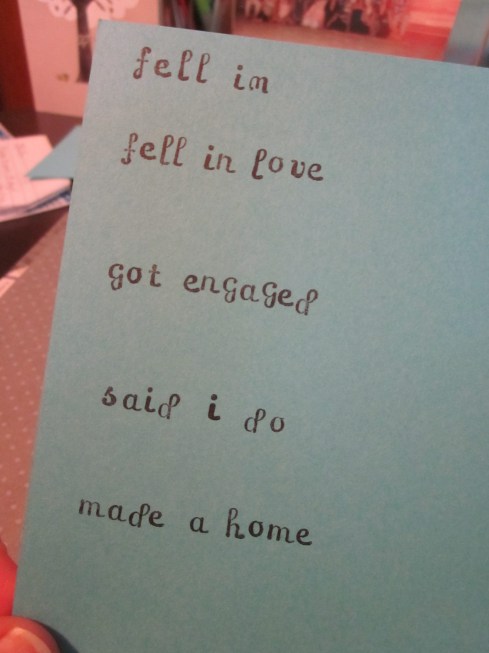 fell im
fell in love
got engaged
said i do
made a home